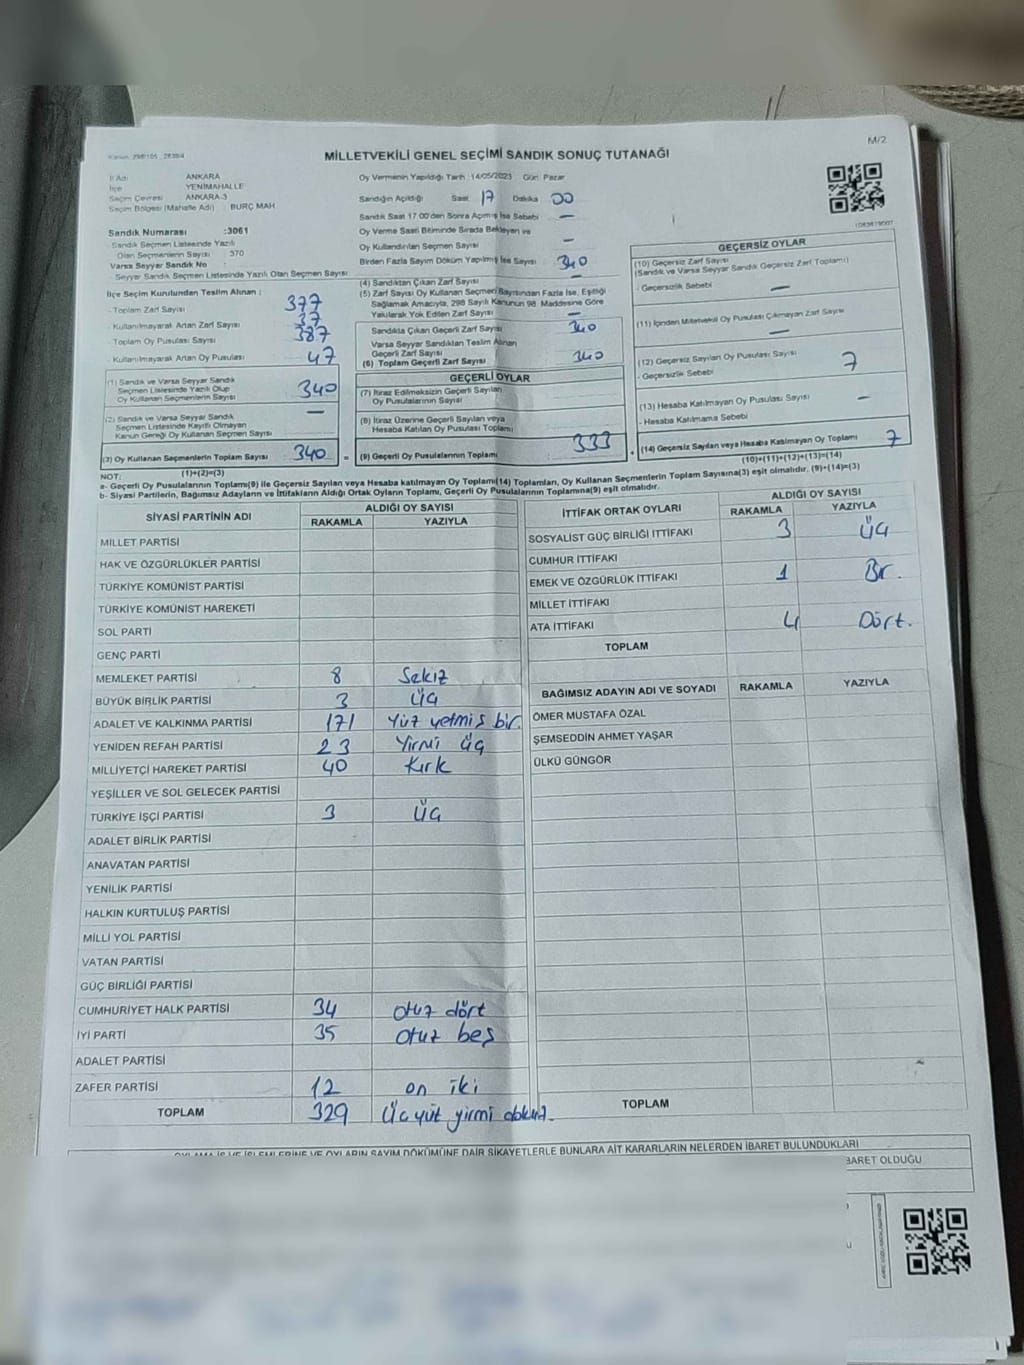 Kanun_298/105 _2839/4
M/2
MİLLETVEKİLİ GENEL SEÇİMİ SANDIK SONUÇ TUTANAĞI
İl Adı ANKARA
İlçe YENİMAHALLE
Seçim Çevresi ANKARA-3
Seçim Bölgesi (Mahalle Adı) : BURÇ MAH.
Sandık Numarası :3061
Sandık Seçmen Listesinde Yazılı
Olan Seçmenlerin Sayısı : 370
Varsa Seyyar Sandık No :
Seyyar Sandık Seçmen Listesinde Yazılı Olan Seçmen Sayısı:
İlçe Seçim Kurulundan Teslim Alınan :
- Toplam Zarf Sayısı 377
- Kullanılmayarak Artan Zarf Sayısı 37
- Toplam Oy Pusulası Sayısı 387
- Kullanılmayarak Artan Oy Pusulası 47
(1) Sandık ve Varsa Seyyar Sandık
Seçmen Listesinde Yazılı Olup
Oy Kullanan Seçmenlerin Sayısı 340
(2) Sandık ve Varsa Seyyar Sandık
Seçmen Listesinde Kayıtlı Olmayan
Kanun Gereği Oy Kullanan Seçmen Sayısı : —
(3) Oy Kullanan Seçmenlerin Toplam Sayısı : 340
(1)+(2)=(3)
Oy Vermenin Yapıldığı Tarih :14/05/2023 Gün: Pazar
Sandığın Açıldığı Saat: 17 Dakika 00
Sandık Saat 17:00'den Sonra Açılmış İse Sebebi : —
Oy Verme Saati Bitiminde Sırada Bekleyen ve
Oy Kullandırılan Seçmen Sayısı : —
Birden Fazla Sayım Döküm Yapılmış İse Sayısı : —
(4) Sandıktan Çıkan Zarf Sayısı : 340
(5) Zarf Sayısı Oy Kullanan Seçmen Sayısından Fazla İse, Eşitliği
Sağlamak Amacıyla, 298 Sayılı Kanunun 98. Maddesine Göre
Yakılarak Yok Edilen Zarf Sayısı : —
Sandıkta Çıkan Geçerli Zarf Sayısı : 340
Varsa Seyyar Sandıktan Teslim Alınan
Geçerli Zarf Sayısı
(6) Toplam Geçerli Zarf Sayısı : 340
GEÇERLİ OYLAR
(7) İtiraz Edilmeksizin Geçerli Sayılan
Oy Pusulalarının Sayısı :
(8) İtiraz Üzerine Geçerli Sayılan veya
Hesaba Katılan Oy Pusulası Toplamı :
= (9) Geçerli Oy Pusulalarının Toplamı : 333
GEÇERSİZ OYLAR
(10) Geçersiz Zarf Sayısı :
(Sandık ve Varsa Seyyar Sandık Geçersiz Zarf Toplamı)
- Geçersizlik Sebebi : —
(11) İçinden Milletvekili Oy Pusulası Çıkmayan Zarf Sayısı
: —
(12) Geçersiz Sayılan Oy Pusulası Sayısı : 7
- Geçersizlik Sebebi :
(13) Hesaba Katılmayan Oy Pusulası Sayısı : —
- Hesaba Katılmama Sebebi :
+ (14) Geçersiz Sayılan veya Hesaba Katılmayan Oy Toplamı : 7
(10)+(11)+(12)+(13)=(14)
NOT:
a- Geçerli Oy Pusulalarının Toplamı(9) ile Geçersiz Sayılan veya Hesaba katılmayan Oy Toplamı(14) Toplamları, Oy Kullanan Seçmenlerin Toplam Sayısına(3) eşit olmalıdır. (9)+(14)=(3)
b- Siyasi Partilerin, Bağımsız Adayların ve İttifakların Aldığı Ortak Oyların Toplamı, Geçerli Oy Pusulalarının Toplamına(9) eşit olmalıdır.
SİYASİ PARTİNİN ADI ALDIĞI OY SAYISI
RAKAMLA YAZIYLA
MİLLET PARTİSİ
HAK VE ÖZGÜRLÜKLER PARTİSİ
TÜRKİYE KOMÜNİST PARTİSİ
TÜRKİYE KOMÜNİST HAREKETİ
SOL PARTİ
GENÇ PARTİ
MEMLEKET PARTİSİ 8 Sekiz
BÜYÜK BİRLİK PARTİSİ 3 Üç
ADALET VE KALKINMA PARTİSİ 171 Yüz yetmiş bir.
YENİDEN REFAH PARTİSİ 23 Yirmi üç
MİLLİYETÇİ HAREKET PARTİSİ 40 Kırk
YEŞİLLER VE SOL GELECEK PARTİSİ
TÜRKİYE İŞÇİ PARTİSİ 3 Üç
ADALET BİRLİK PARTİSİ
ANAVATAN PARTİSİ
YENİLİK PARTİSİ
HALKIN KURTULUŞ PARTİSİ
MİLLİ YOL PARTİSİ
VATAN PARTİSİ
GÜÇ BİRLİĞİ PARTİSİ
CUMHURİYET HALK PARTİSİ 34 otuz dört
İYİ PARTİ 35 otuz beş
ADALET PARTİSİ
ZAFER PARTİSİ 12 on iki
TOPLAM 329 Üç yüz yirmi dokuz.
İTTİFAK ORTAK OYLARI ALDIĞI OY SAYISI
RAKAMLA YAZIYLA
SOSYALİST GÜÇ BİRLİĞİ İTTİFAKI 3 Üç
CUMHUR İTTİFAKI
EMEK VE ÖZGÜRLÜK İTTİFAKI 1 Bir.
MİLLET İTTİFAKI
ATA İTTİFAKI 4 Dört.
TOPLAM
BAĞIMSIZ ADAYIN ADI VE SOYADI RAKAMLA YAZIYLA
ÖMER MUSTAFA ÖZAL
ŞEMSEDDİN AHMET YAŞAR
ÜLKÜ GÜNGÖR
TOPLAM
OYLAMA İŞ VE İŞLEMLERİNE VE OYLARIN SAYIM DÖKÜMÜNE DAİR ŞİKAYETLERLE BUNLARA AİT KARARLARIN NELERDEN İBARET BULUNDUKLARI
BARET OLDUĞU